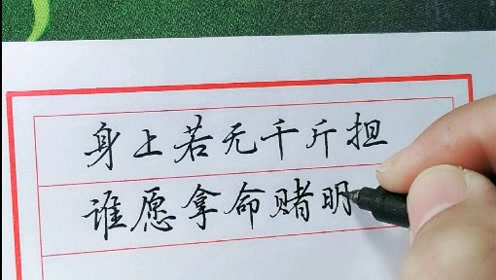 身上若无千斤担
谁愿拿命赌明